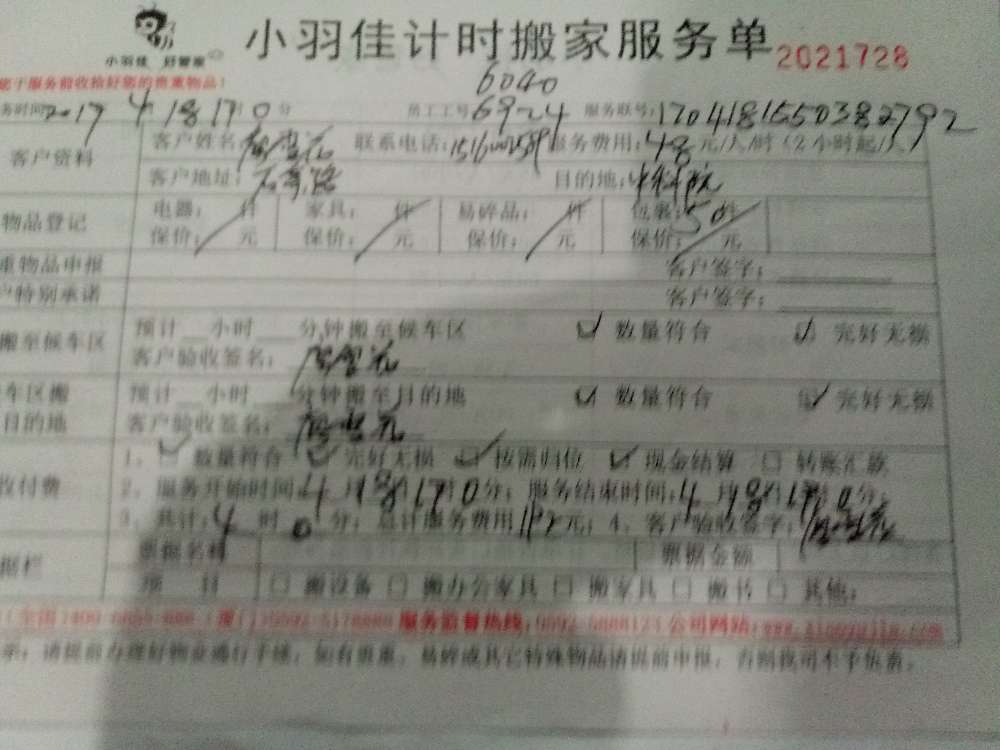 小羽佳计时搬家服务单 2021728
小羽佳 好管家
于服务前收捡好您的贵重物品!
6040
务时间 2017 4 18 17 0 分 员工工号: 6924 服务联号:
客户资料 客户姓名: 联系电话: 服务费用:48元/人/时(2小时起/人)
客户地址: 目的地:中科院
物品登记 电器: 件 家具: 件 易碎品: 件 包裹:50件
保价: 元 保价: 元 保价: 元 保价: 元
重物品申报 客户签字:
户特别承诺 客户签字:
搬至候车区 预计 小时 分钟搬至候车区 数量符合 完好无损
客户验收签名:
车区搬 预计 小时 分钟搬至目的地 数量符合 完好无损
目的地 客户验收签名:
收付费 1、数量符合 完好无损 按需归位 现金结算 转账汇款
2、服务开始时间:4月18日17时0分;服务结束时间:4月18日17时0分;
3、共计:4时0分;总计服务费用 元;4、客户验收签字:
据栏 票据名称 票据金额
项 目 搬设备 搬办公家具 搬家具 搬书 其他:
服务监督热线: 公司网站:
请提前办理好物业通行手续,如有贵重、易碎或其它特殊物品请提前申报,否则我司不予负责。